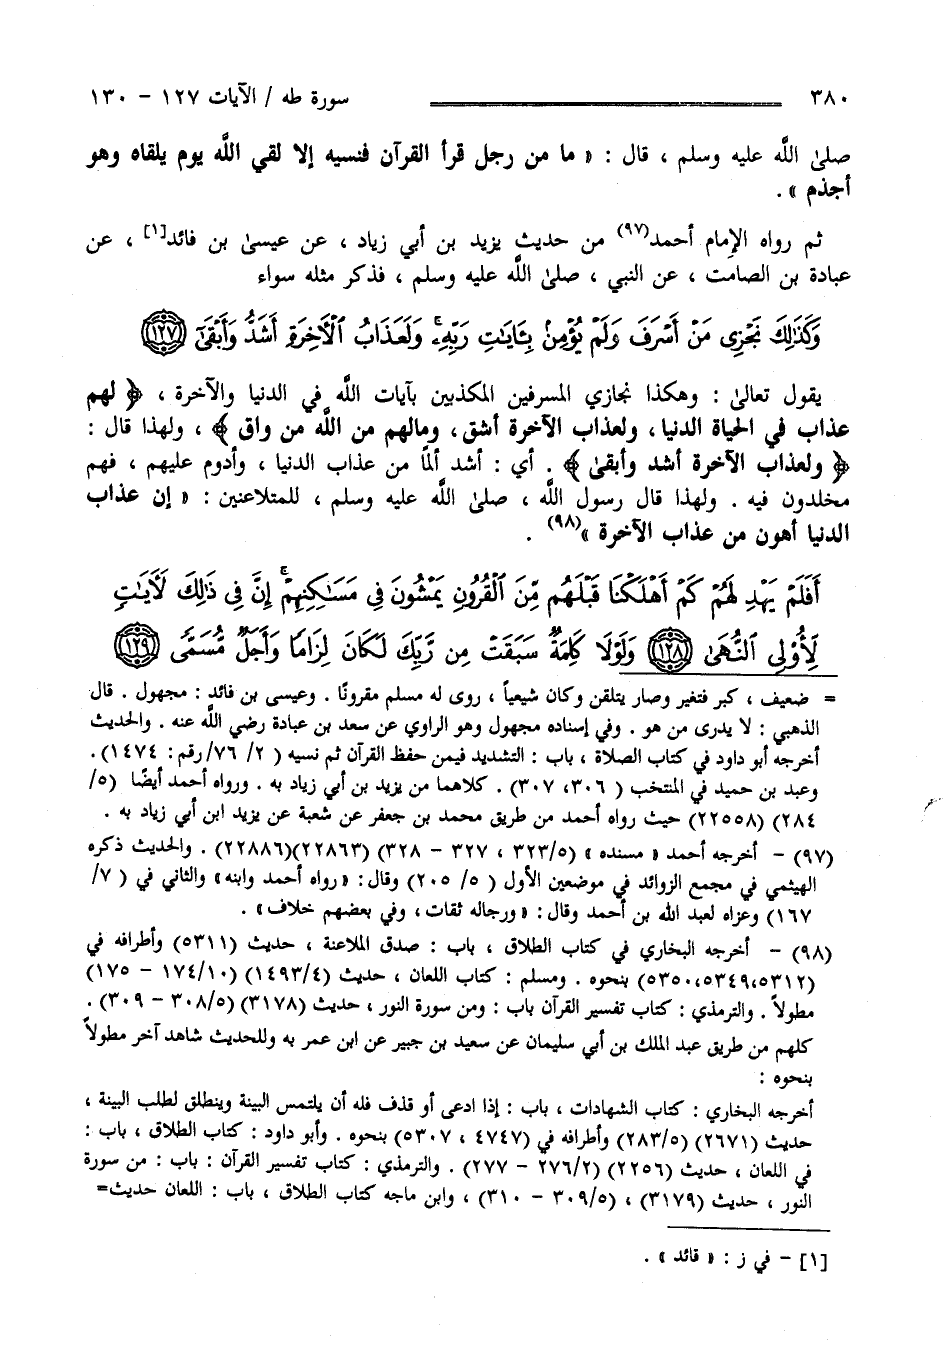 ٣٨٠ سورة طه / الآيات ١٢٧ - ١٣٠
صلىٰ اللَّه عليه وسلم ، قال : « ما من رجل قرأ القرآن فنسيه إلا لقي اللَّه يوم يلقاه وهو
أجذم » .
ثم رواه الإمام أحمد(٩٧) من حديث يزيد بن أبي زياد ، عن عيسىٰ بن فائد[١] ، عن
عبادة بن الصامت ، عن النبي ، صلىٰ اللَّه عليه وسلم ، فذكر مثله سواء
وَكَذَٰلِكَ نَجْزِى مَنْ أَسْرَفَ وَلَمْ يُؤْمِنۢ بِـَٔايَـٰتِ رَبِّهِۦ ۚ وَلَعَذَابُ ٱلْـَٔاخِرَةِ أَشَدُّ وَأَبْقَىٰٓ ١٢٧
يقول تعالىٰ : وهكذا نجازي المسرفين المكذبين بآيات اللَّه في الدنيا والآخرة ، ﴿ لهم
عذاب في الحياة الدنيا ، ولعذاب الآخرة أشق ، ومالهم من اللَّه من واق ﴾ ، ولهذا قال :
﴿ ولعذاب الآخرة أشد وأبقىٰ ﴾ . أي : أشد ألمًا من عذاب الدنيا ، وأدوم عليهم ، فهم
مخلدون فيه . ولهذا قال رسول اللَّه ، صلىٰ اللَّه عليه وسلم ، للمتلاعنين : « إن عذاب
الدنيا أهون من عذاب الآخرة »(٩٨) .
أَفَلَمْ يَهْدِ لَهُمْ كَمْ أَهْلَكْنَا قَبْلَهُم مِّنَ ٱلْقُرُونِ يَمْشُونَ فِى مَسَـٰكِنِهِمْ ۚ إِنَّ فِى ذَٰلِكَ لَـَٔايَـٰتٍ
لِّأُو۟لِى ٱلنُّهَىٰ ١٢٨ وَلَوْلَا كَلِمَةٌ سَبَقَتْ مِن رَّبِّكَ لَكَانَ لِزَامًا وَأَجَلٌ مُّسَمًّى ١٢٩
= ضعيف ، كبر فتغير وصار يتلقن وكان شيعياً ، روى له مسلم مقرونًا . وعيسى بن فائد : مجهول . قال
الذهبي : لا يدرى من هو . وفي إسناده مجهول وهو الراوي عن سعد بن عبادة رضي اللَّه عنه . والحديث
أخرجه أبو داود في كتاب الصلاة ، باب : التشديد فيمن حفظ القرآن ثم نسيه ( ٢/ ٧٦/رقم : ١٤٧٤) .
وعبد بن حميد في المنتخب ( ٣٠٦، ٣٠٧) . كلاهما من يزيد بن أبي زياد به . ورواه أحمد أيضًا (٥/
٢٨٤) (٢٢٥٥٨) حيث رواه أحمد من طريق محمد بن جعفر عن شعبة عن يزيد ابن أبي زياد به .
(٩٧) - أخرجه أحمد « مسنده » (٣٢٣/٥ ، ٣٢٧ - ٣٢٨) (٢٢٨٦٣)(٢٢٨٨٦) . والحديث ذكره
الهيثمي في مجمع الزوائد في موضعين الأول ( ٥/ ٢٠٥) وقال : «رواه أحمد وابنه» والثاني في ( ٧/
١٦٧) وعزاه لعبد الله بن أحمد وقال : «ورجاله ثقات ، وفي بعضهم خلاف» .
(٩٨) - أخرجه البخاري في كتاب الطلاق ، باب : صدق الملاعنة ، حديث (٥٣١١) وأطرافه في
(٥٣١٢،٥٣٤٩،٥٣٥٠) بنحوه . ومسلم : كتاب اللعان ، حديث (١٤٩٣/٤) (١٧٤/١٠ - ١٧٥)
مطولاً . والترمذي : كتاب تفسير القرآن باب : ومن سورة النور ، حديث (٣١٧٨) (٣٠٨/٥ - ٣٠٩) .
كلهم من طريق عبد الملك بن أبي سليمان عن سعيد بن جبير عن ابن عمر به وللحديث شاهد آخر مطولاً
بنحوه :
أخرجه البخاري : كتاب الشهادات ، باب : إذا ادعى أو قذف فله أن يلتمس البينة وينطلق لطلب البينة ،
حديث (٢٦٧١) (٢٨٣/٥) وأطرافه في (٤٧٤٧ ، ٥٣٠٧) بنحوه . وأبو داود : كتاب الطلاق ، باب :
في اللعان ، حديث (٢٢٥٦) (٢٧٦/٢ - ٢٧٧) . والترمذي : كتاب تفسير القرآن : باب : من سورة
النور ، حديث (٣١٧٩) ، (٣٠٩/٥ - ٣١٠) ، وابن ماجه كتاب الطلاق ، باب : اللعان حديث=
[١] - في ز : « قائد » .